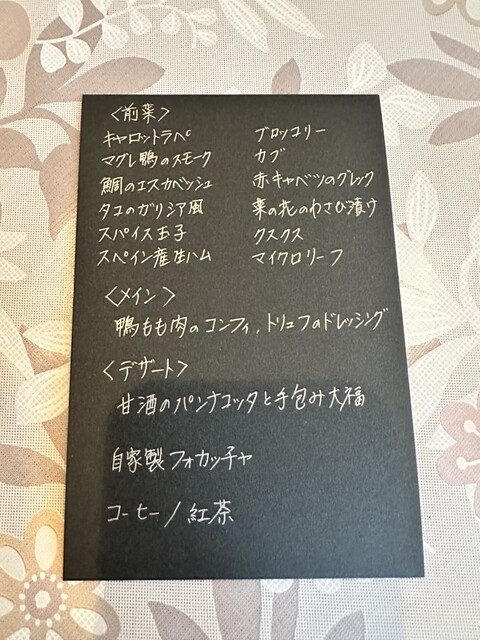 〈前菜〉
キャロットラペ
マグレ鴨のスモーク
鯛のエスカベッシュ
タコのガリシア風
スパイス玉子
スペイン産生ハム
ブロッコリー
カブ
赤キャベツのグレック
菜の花のわさび漬け
クスクス
マイクロリーフ
〈メイン〉
鴨もも肉のコンフィ,トリュフのドレッシング
〈デザート〉
甘酒のパンナコッタと手包み大福
自家製フォカッチャ
コーヒー/紅茶